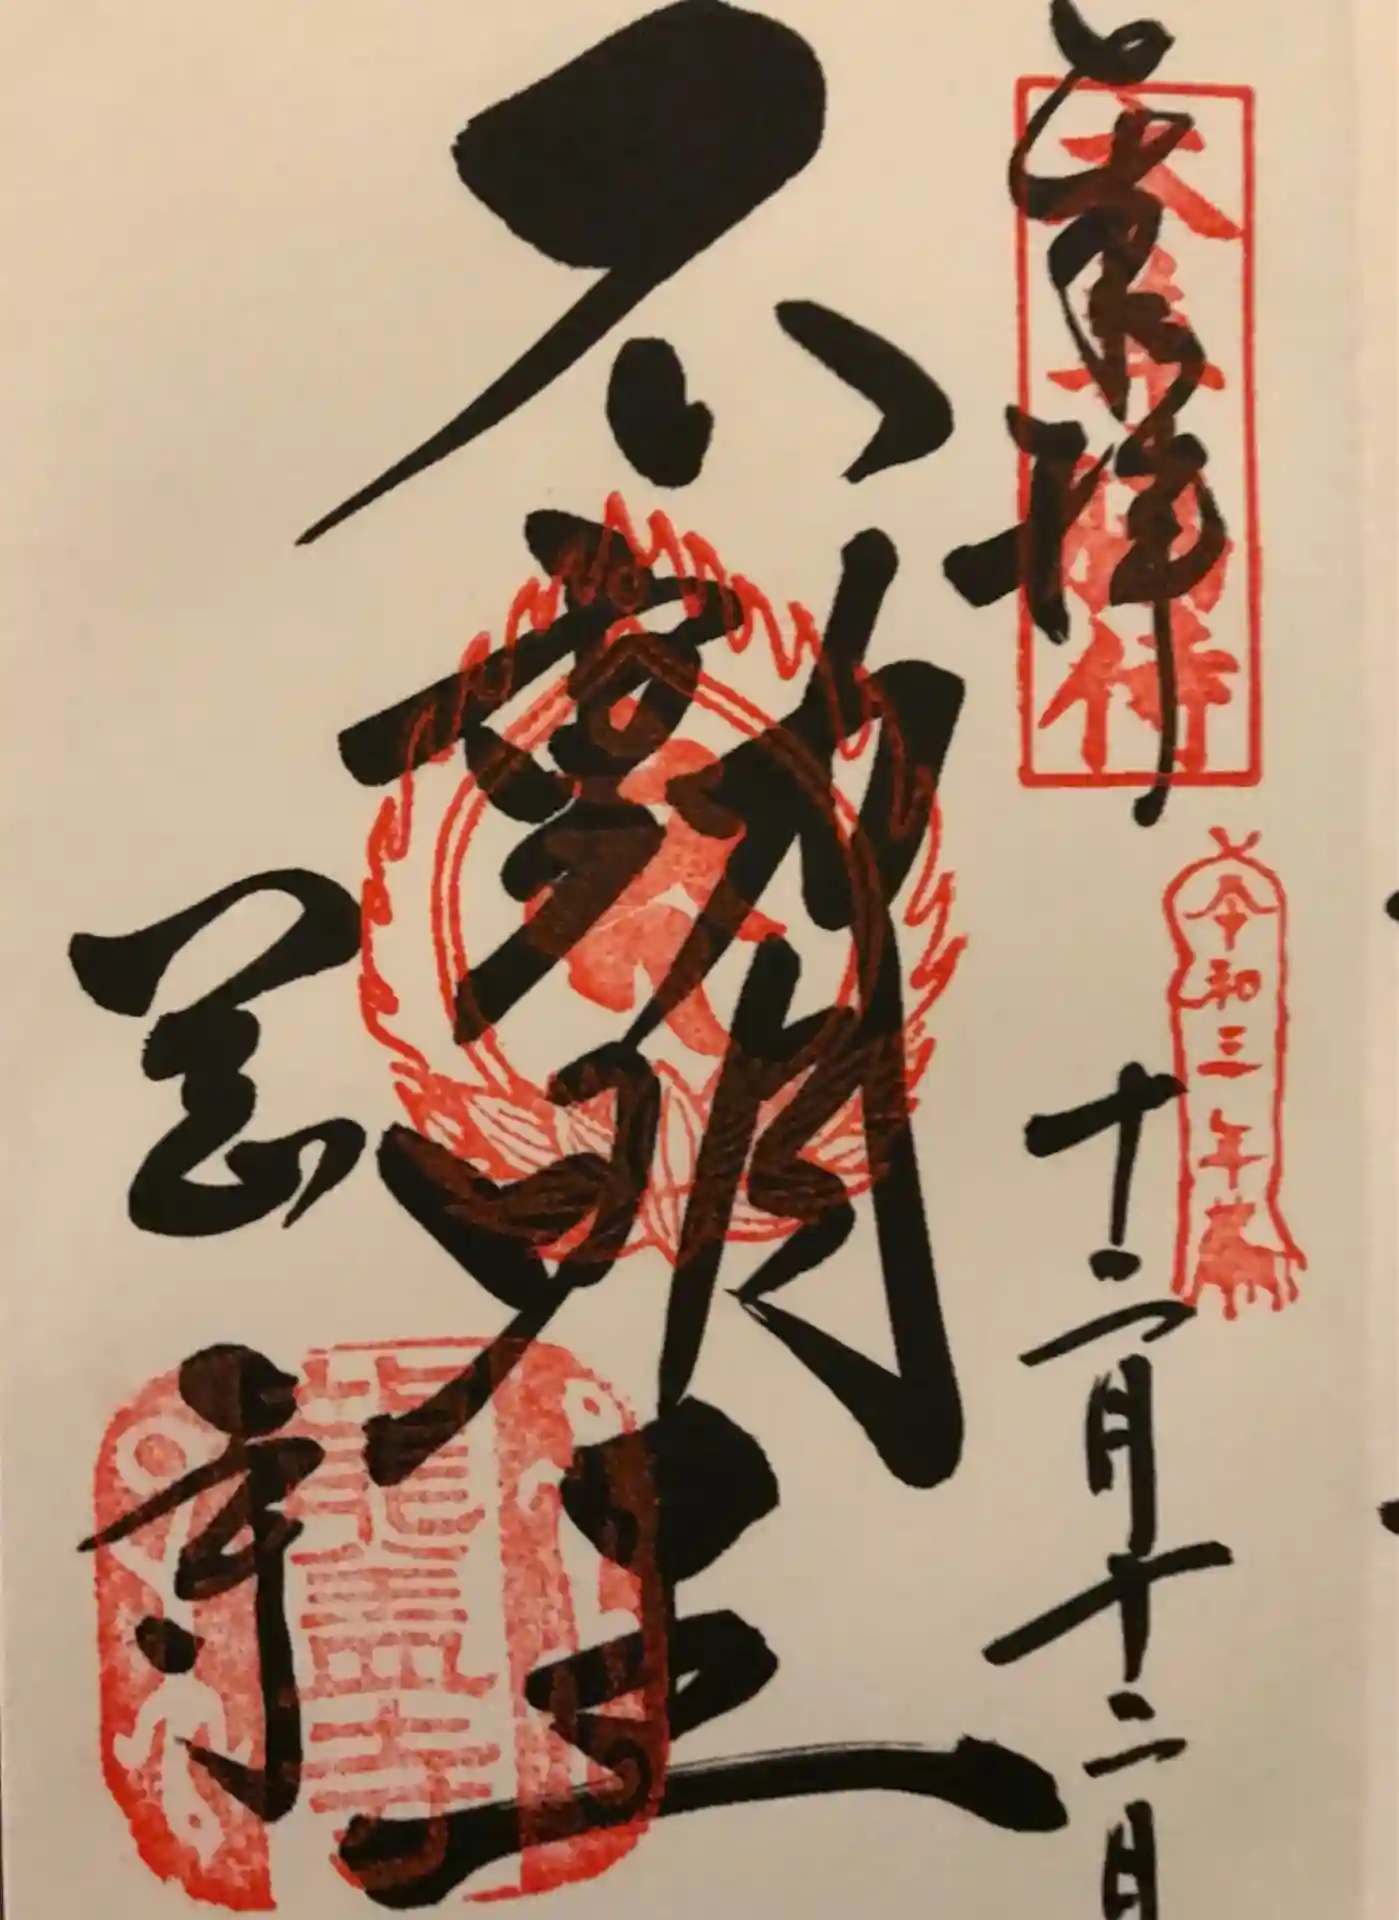 奉拝
令和三年
十二月十二日
不動明王
岡寺